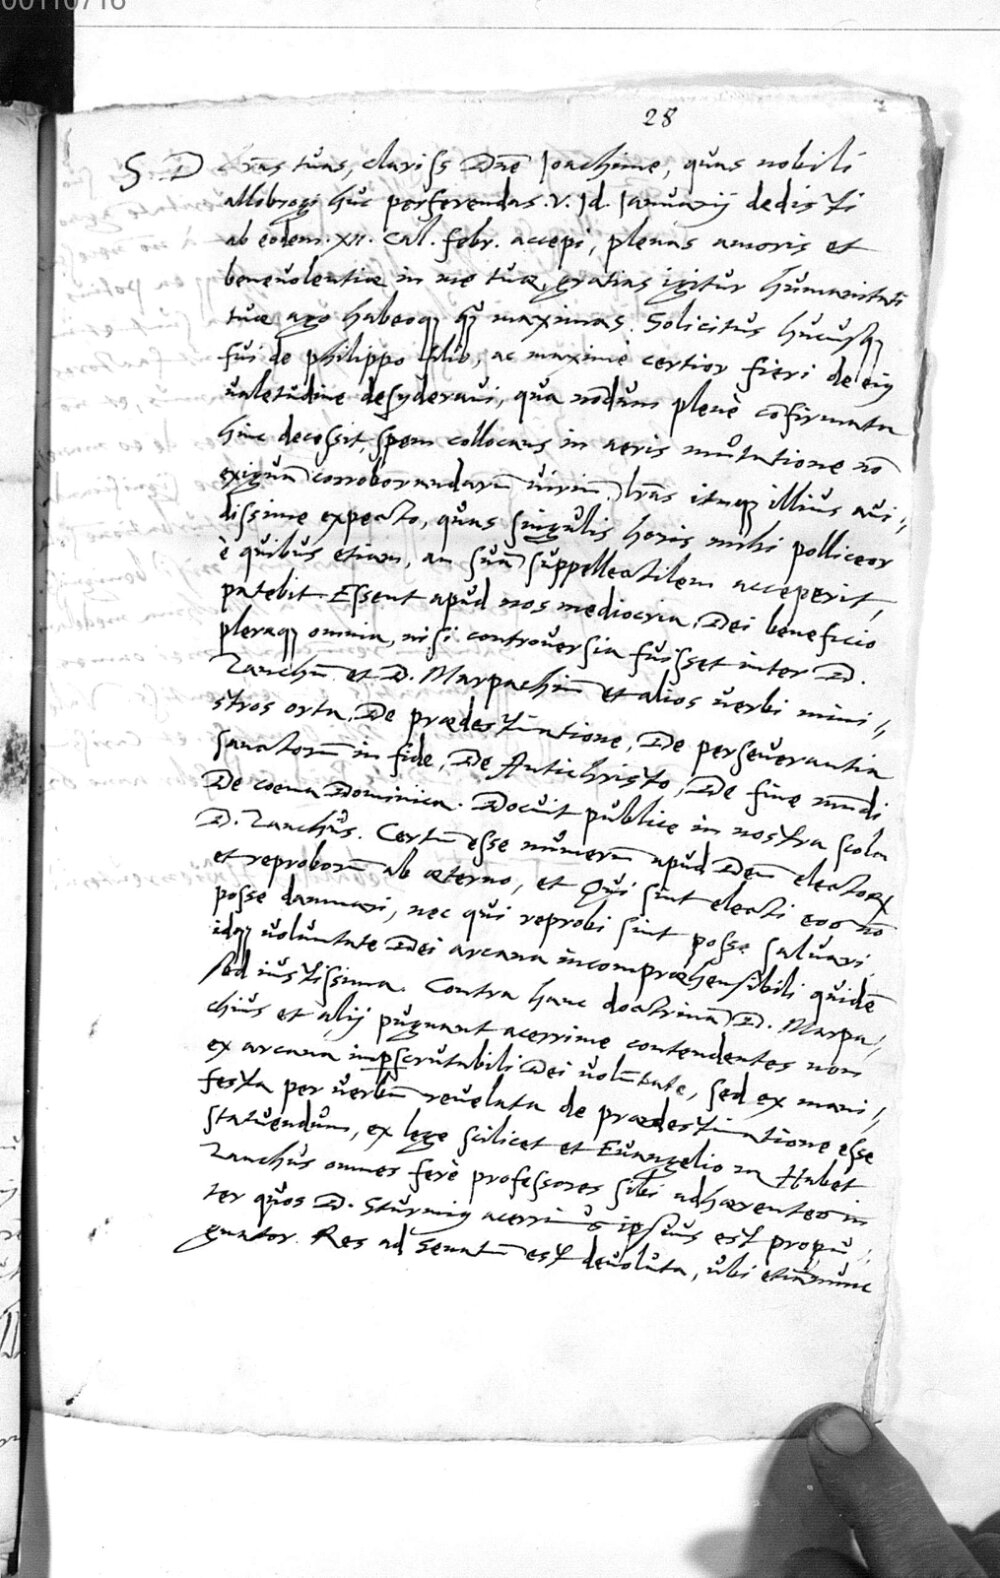 00110716
28
S. D. Lr̄as tuas, clariss Dn̄e Ioachime, quas nobili
allobrogi huc perferendas .v. Id. Ianuarij dedisti
ab eodem .XII. Cal. febr. accepi, plenas amoris et
beneuolentiæ in me tuæ, gratias igitur humanitati
tuæ ago habeoq; q̄; maximas. Solicitus hucusq;
fui de philippo filio, ac maximè certior fieri de eiꝰ
ualetudine desyderaui, qua nōdum plenè cōfirmata
hinc decessit, spem collocans in aeris mutatione nō
exiguā corroborandarū uiriū. Lr̄as itaq; illius aui„
dissime expecto, quas singulis horis mihi polliceor
è quibus etiam, an suā suppellectilem acceperit,
patebit. Essent apud nos mediocria, Dei beneficio
pleraq; omnia, nisi controuersia fuisset inter D.
Zanchū et D. Marpachiū et alios uerbi mini„
stros orta, De prædestinatione, De perseuerantia
sanctorū in fide, De Antichristo, De fine mūdi
De coena Dominica. Docuit publice in nostra scola
D. Zanchus. Certū esse numerū apud Deū electorꝝ
et reproborū ab æterno, et Qui sint electi eos nō
posse damnari, nec qui reprobi sint posse saluari
idq; uoluntate Dei arcana incompræhensibili quidē
sed iustissima. Contra hanc doctrinā D. Marpa„
chius et alij pugnant acerrime contendentes non
ex arcana imperscrutabili Dei volūtate, sed ex mani„
festa per uerbū reuelata de prædestinatione esse
statuendum, ex lege scilicet et Euangelio Habet
Zanchus omnes ferè professores sibi adhærentes in
ter quos D. Sturmiꝰ acerrimꝰ ipsius est propu„
gnator. Res ad Senatū est deuoluta, ubi etiānunc